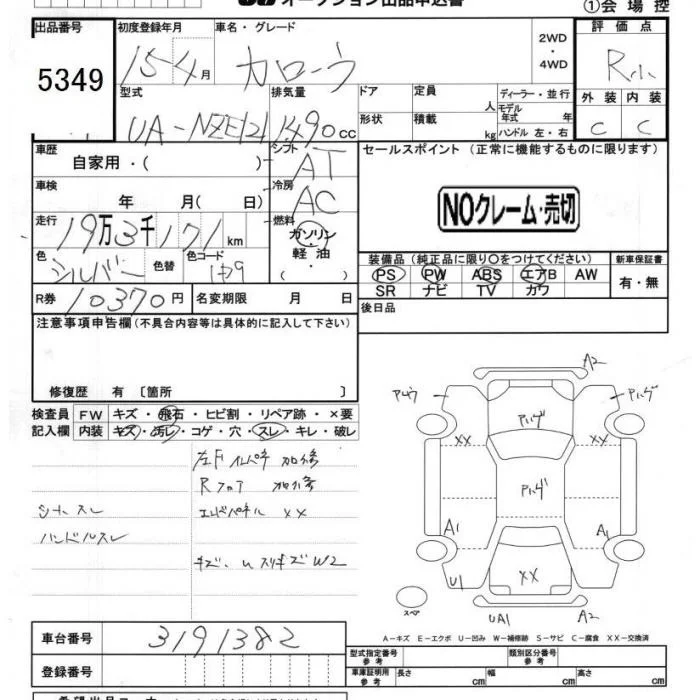 オークション出品申込書 ①会場控
出品番号 5349
初度登録年月 15-4月
車名・グレード カローラ
2WD・4WD
評価点 R
外装 C 内装 C
型式 UA-NZE121
排気量 1490cc
ドア 定員 人 ディーラー・並行
形状 積載 kg モデル年式 年 ハンドル 左・右
車歴 自家用・( )
シフト AT
セールスポイント (正常に機能するものに限ります)
NOクレーム・売切
車検 年 月( 日)
冷房 AC
走行 19万3千171km
燃料 ガソリン・軽油・( )
色 シルバー 色替 色コード 1F9
装備品 (純正品に限り○をつけてください) 新車保証書
PS PW ABS エアB AW 有・無
SR ナビ TV カワ
R券 10370円 名変期限 月 日
後日品
注意事項申告欄(不具合内容等は具体的に記入して下さい)
修復歴 有〔箇所 〕
検査員記入欄 FW キズ・飛石・ヒビ割・リペア跡・×要
内装 キズ・汚レ・コゲ・穴・スレ・キレ・破レ
左F インパネ 加修
Rフロア 加修
シートスレ エンドパネル XX
ハンドルスレ
キズ、u スリキズ W2
A2
アルゲ
アルゲ
XX XX
アルゲ
A1 A1
U1 XX
スペア UA1 A2
A-キズ E-エクボ U-凹み W-補修跡 S-サビ C-腐食 XX-交換済
車台番号 3191382
型式指定番号 参考 類別区分番号 参考
登録番号
車庫証明用 参考 長さ cm 幅 cm 高さ cm